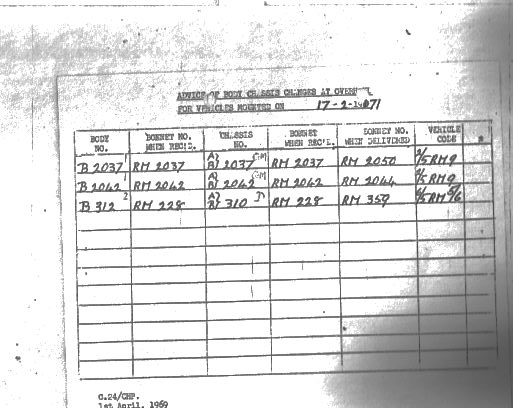 ADVICE OF BODY CHASSIS CHANGES AT
FOR VEHICLES MOUNTED ON 17-2-1971
BODY NO. BONNET NO. WHEN REC'D. CHASSIS NO. BONNET WHEN REC'D. BONNET NO. WHEN DELIVERED VEHICLE CODE
B 2037 RM 2037 2037 RM 2037 RM 2050 RM9
B 2042 RM 2042 2042 RM 2042 RM 2044 RM9
B 312 RM 228 310 RM 228 RM 359
C.24/CHP.
1st April, 1969